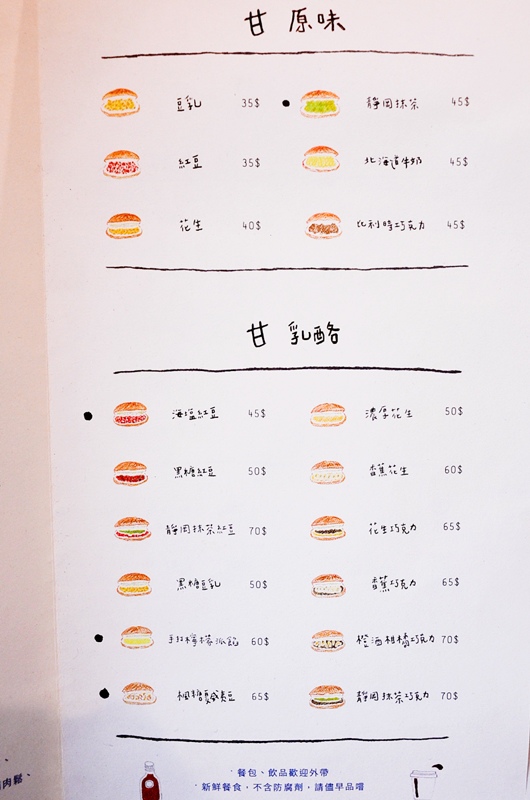 甘 原味
豆乳 35$ 靜岡抹茶 45$
紅豆 35$ 北海道牛奶 45$
花生 40$ 比利時巧克力 45$
甘 乳酪
海塩紅豆 45$ 濃厚花生 50$
黑糖紅豆 50$ 香蕉花生 60$
靜岡抹茶紅豆 70$ 花生巧克力 65$
黑糖豆乳 50$ 香蕉巧克力 65$
手扣檸檬派館 60$ 橙酒柑橘巧克力 70$
楓糖鹹豆 65$ 靜岡抹茶巧克力 70$
餐包、飲品歡迎外帶
新鮮餐食，不含防腐劑，請儘早品嚐
肉鬆、